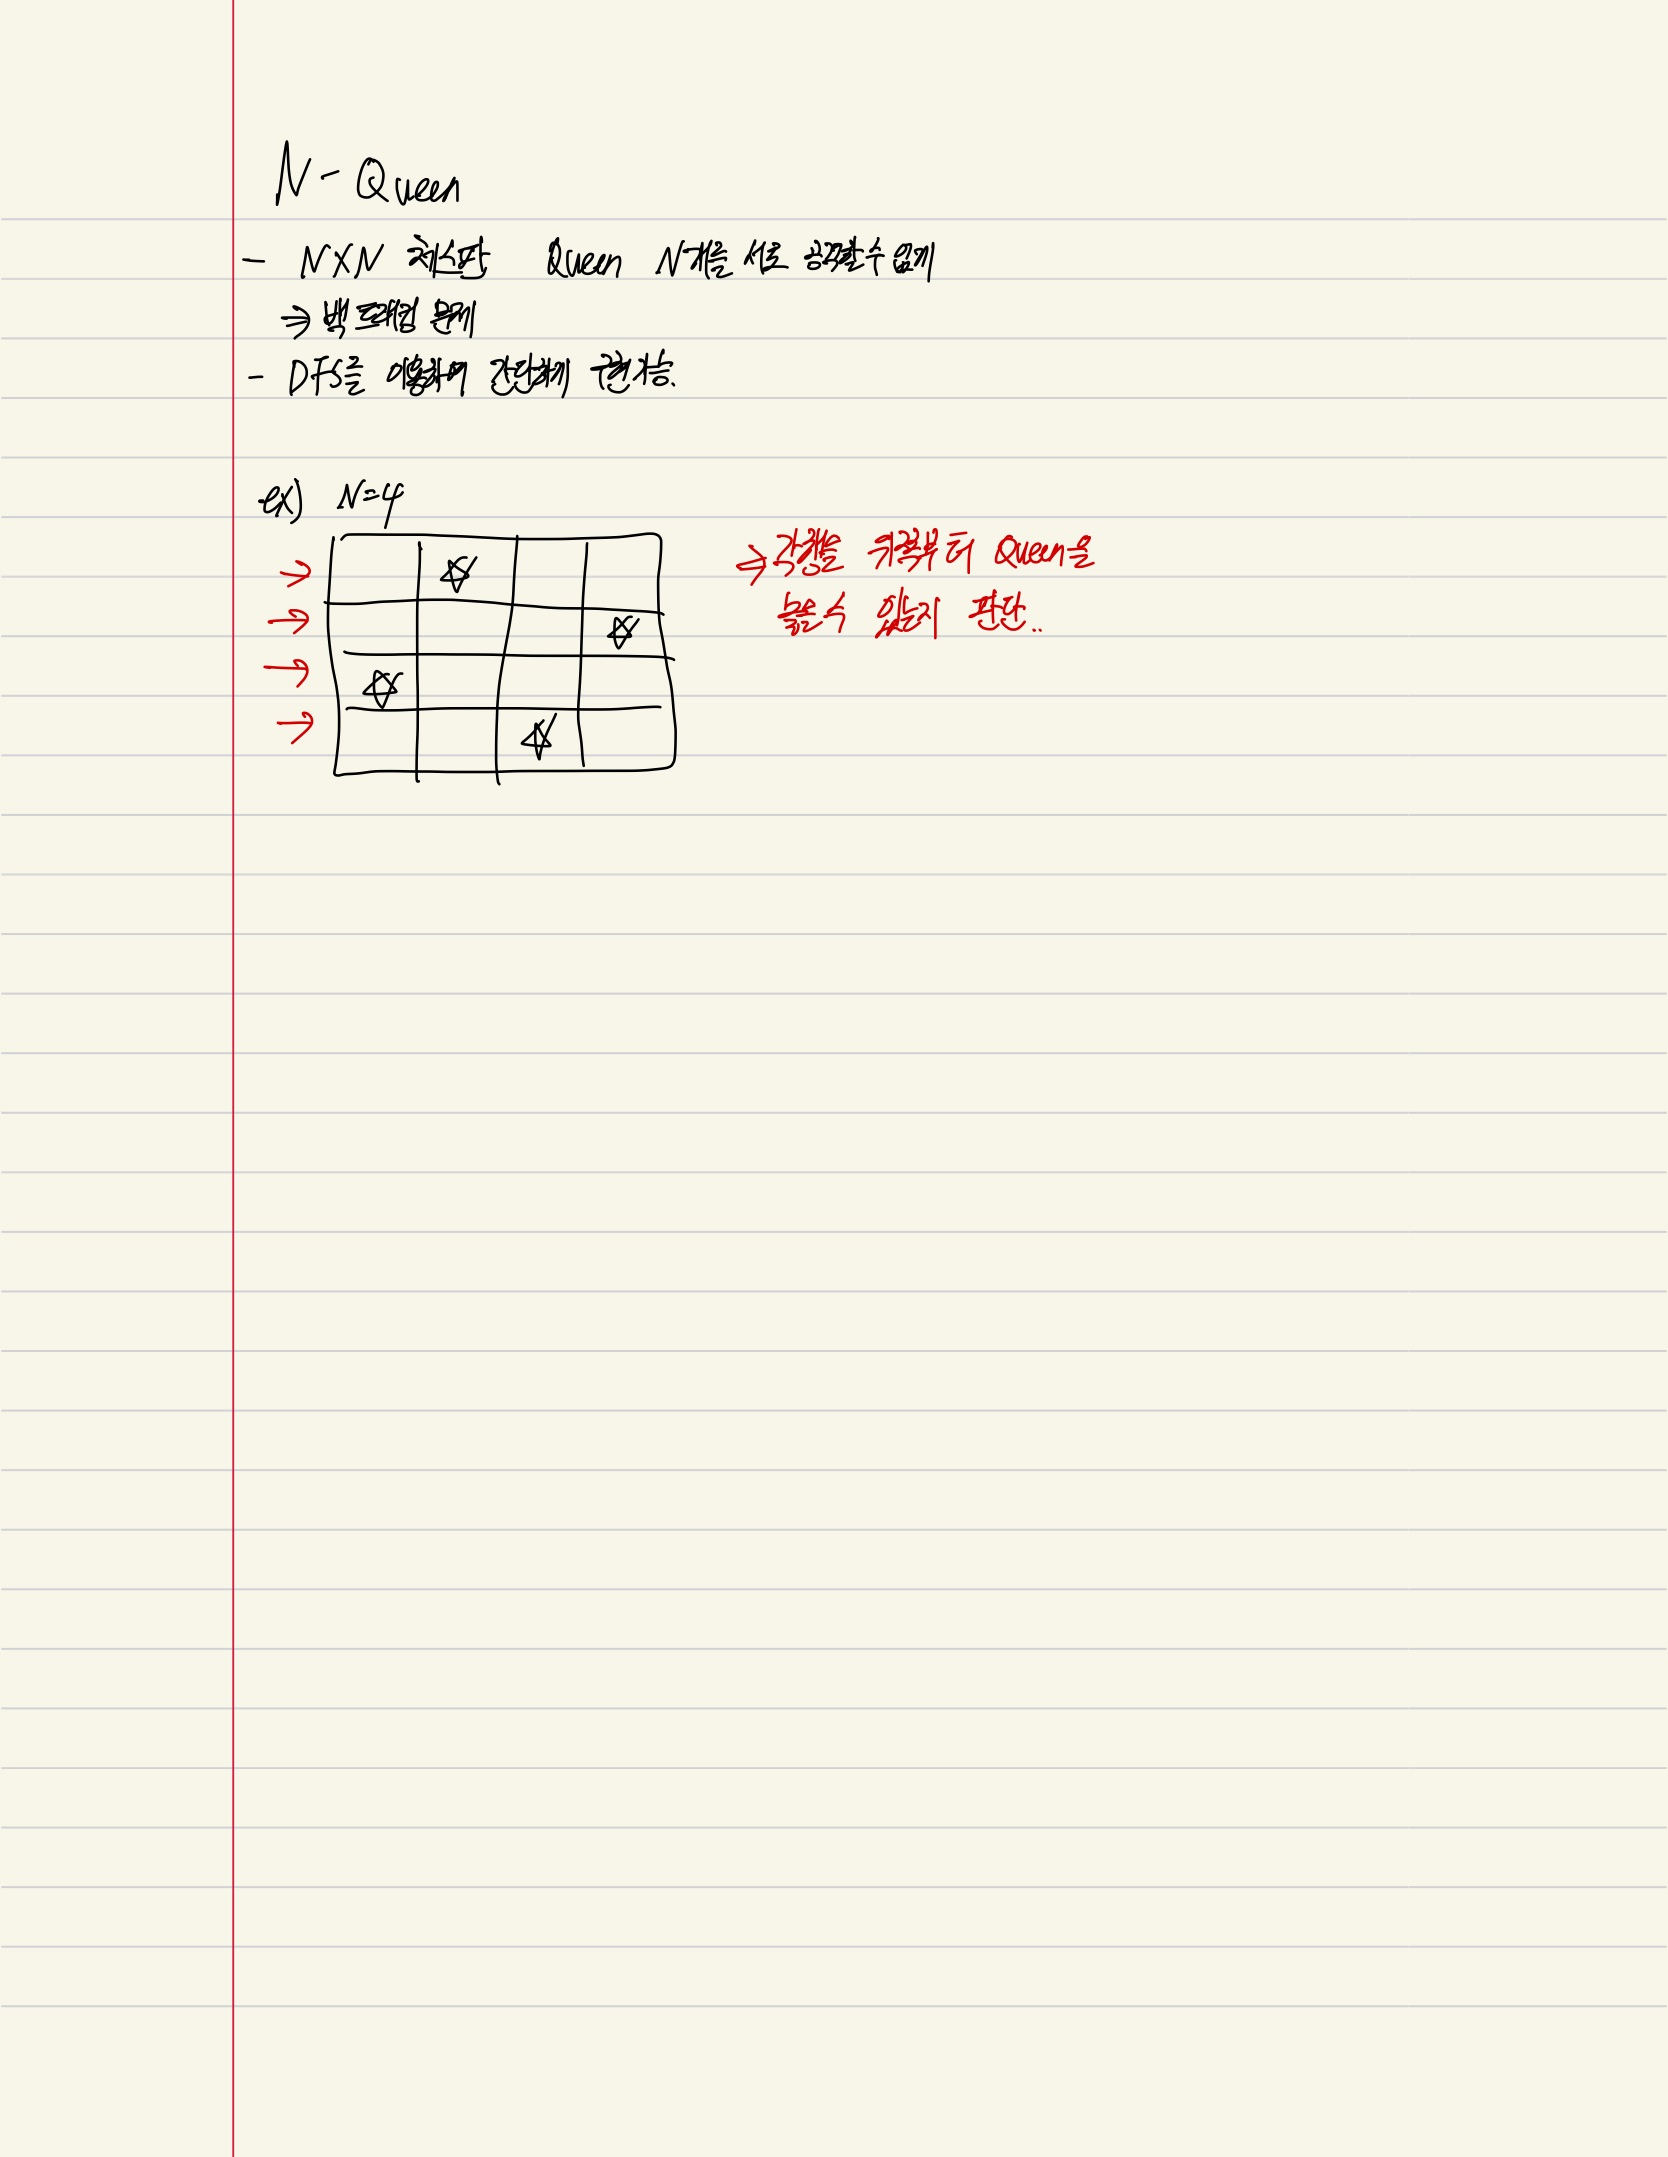 N-Queen
- N×N 체스판 Queen N개를 서로 공격할 수 없게
⇒ 백트래킹 문제
- DFS를 이용하여 간단하게 구현가능.
ex) N=4
⇒ 각행을 위쪽부터 Queen을
놓을 수 있는지 판단..